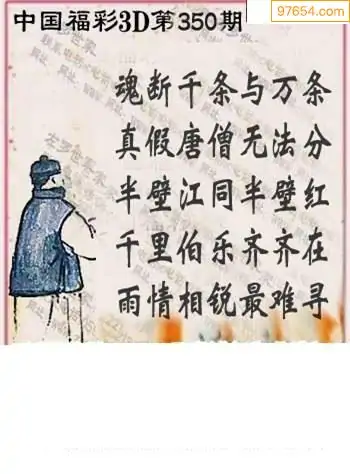 中国福彩3D第350期
97654.com
魂断千条与万条
真假唐僧无法分
半壁江同半壁红
千里伯乐齐齐在
雨情相锐最难寻